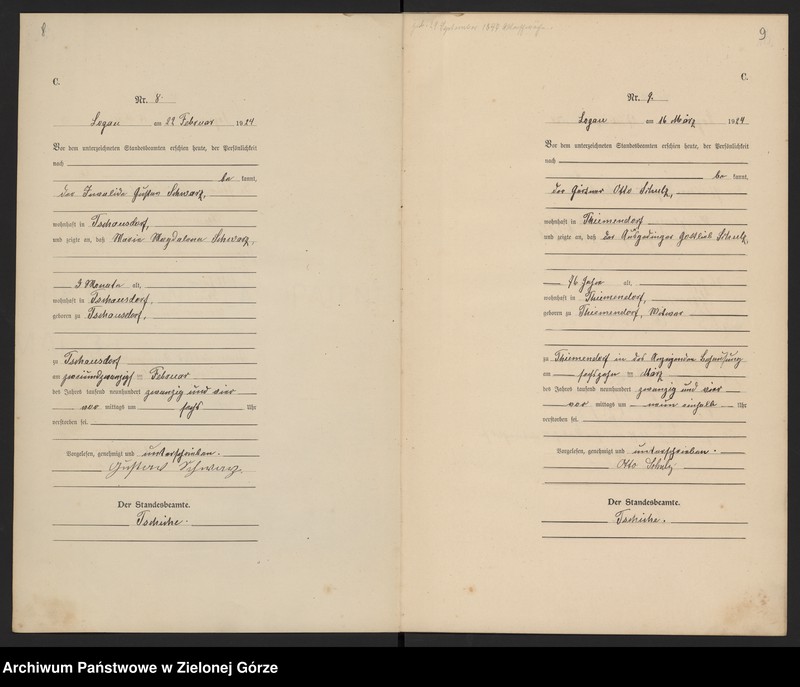 8
C.
Nr. 8.
Logau am 22 Februar 1924
Vor dem unterzeichneten Standesbeamten erschien heute, der Persönlichkeit
nach
be kannt,
der Invalide Gustav Schwarz,
wohnhaft in Tschausdorf,
und zeigte an, daß Maria Magdalena Schwarz,
3 Monate alt,
wohnhaft in Tschausdorf,
geboren zu Tschausdorf,
zu Tschausdorf
am zweiundzwanzigsten Februar
des Jahres tausend neunhundert zwanzig und vier
vor mittags um sechs Uhr
verstorben sei.
Vorgelesen, genehmigt und unterschrieben.
Gustav Schwarz
Der Standesbeamte.
9
C.
Nr. 9.
Logau am 16 März 1924
Vor dem unterzeichneten Standesbeamten erschien heute, der Persönlichkeit
nach
be kannt,
der Gärtner Otto Schulz,
wohnhaft in Thiemendorf
und zeigte an, daß der Ausgedinger Gottlieb Schulz,
76 Jahre alt,
wohnhaft in Thiemendorf,
geboren zu Thiemendorf, Witwer
zu Thiemendorf in des Anzeigenden Behausung
am sechszehn März
des Jahres tausend neunhundert zwanzig und vier
vor mittags um neun einhalb Uhr
verstorben sei.
Vorgelesen, genehmigt und unterschrieben.
Otto Schulz
Der Standesbeamte.
Archiwum Państwowe w Zielonej Górze